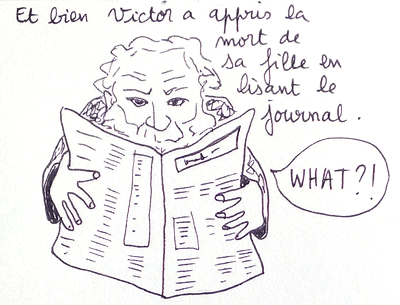 Et bien Victor a appris la
mort de
sa fille en
lisant le
journal.
WHAT?!